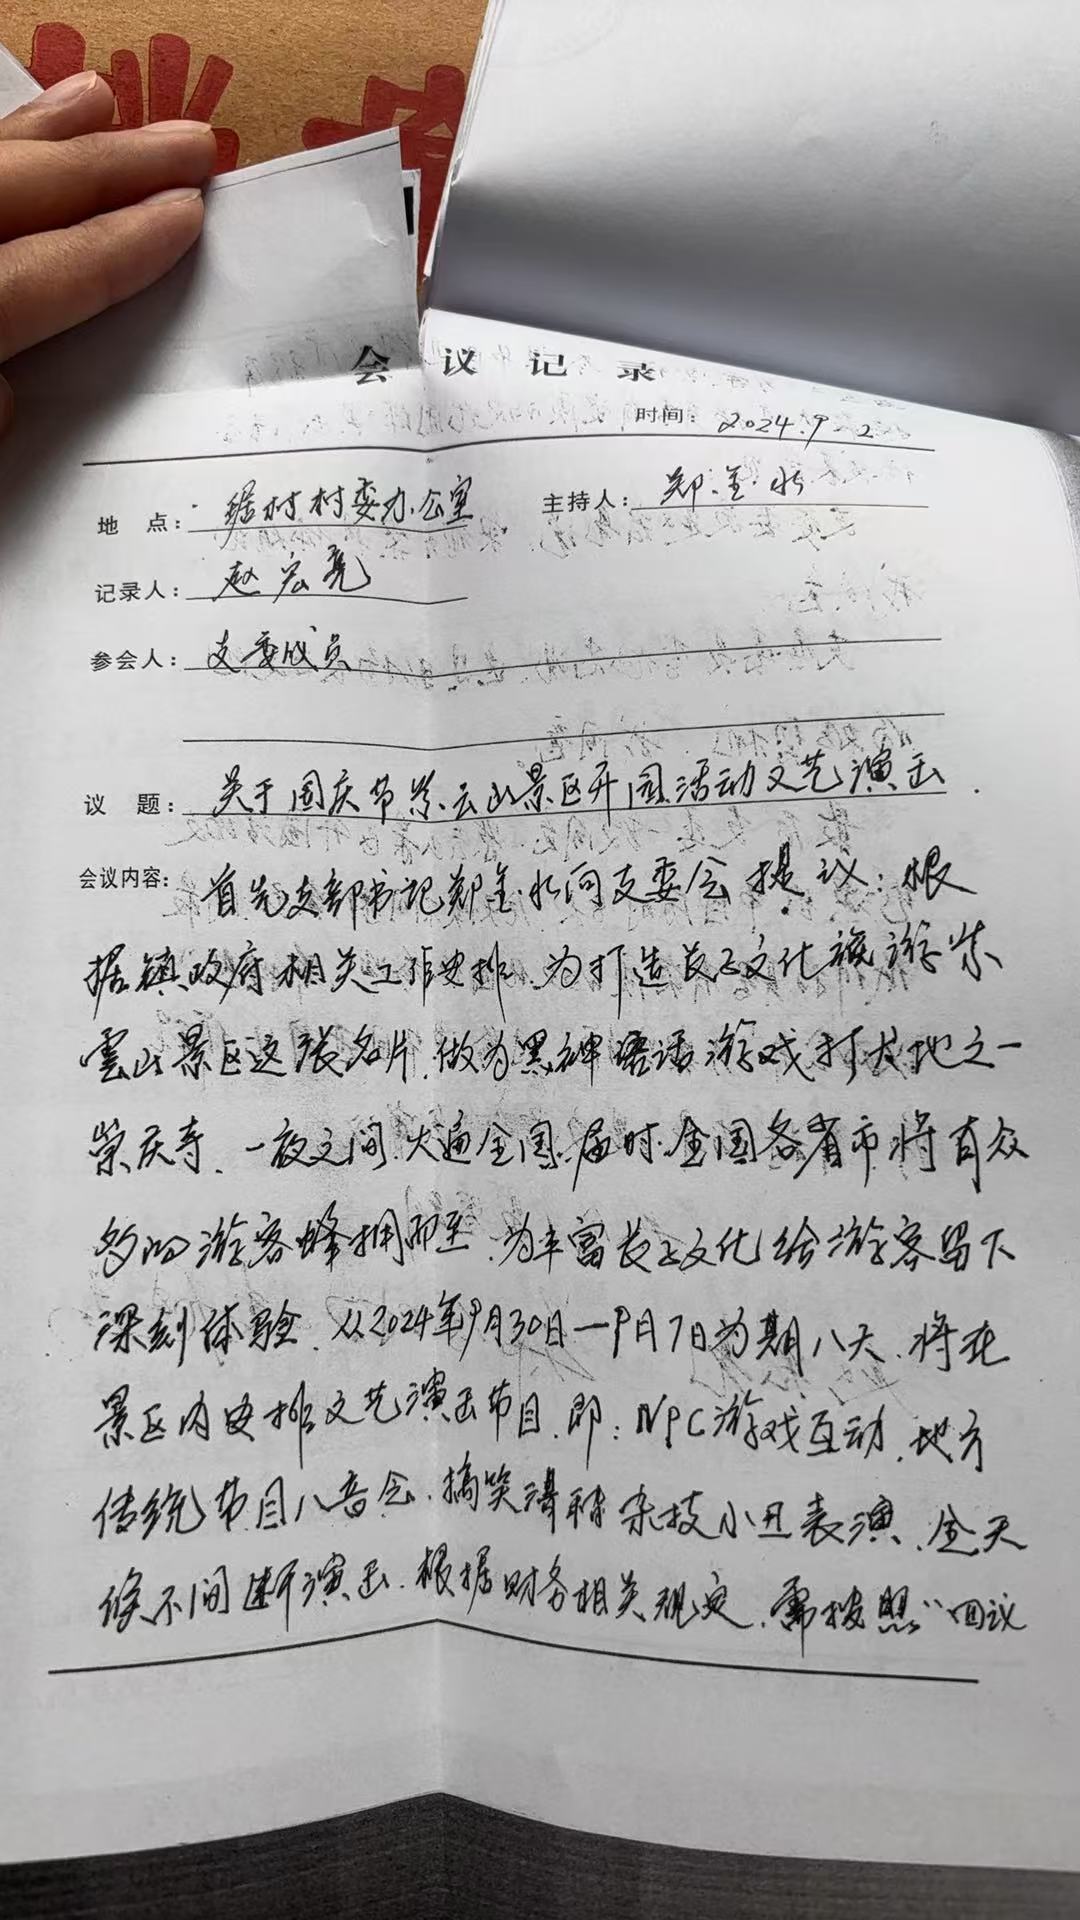 会议记录
时间: 2024.9.2
地 点: 琚村村委办公室 主持人: 郑金水
记录人: 赵宏亮
参会人: 支委成员
议 题: 关于国庆节紫云山景区开园活动文艺演出.
会议内容: 首先支部书记郑金水向支委会提议: 根
据镇政府相关工作安排、为打造长子文化旅游紫
雲山景区这张名片,做为黑神话游戏打卡地之一
崇庆寺、一夜之间火遍全国.届时.全国各省市将有众
多的游客蜂拥而至、为丰富长子文化给游客留下
深刻体验、从2024年9月30日—9月7日为期八天、将在
景区内安排文艺演出节目、即: NPC游戏互动、地方
传统节目八音会、搞笑滑稽杂技小丑表演、全天
候不间断演出.根据财务相关规定、需按照“四议